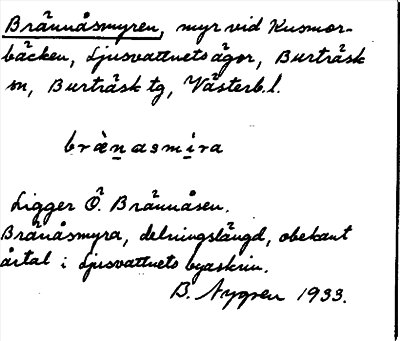 Brännåsmyren, myr vid Kusmor-
bäcken, Ljusvattnets ägor, Burträsk
sn, Burträsk tg, Västerb.l.
brä̀nasmira
Ligger Ö. Brännåsen.
Brännåsmyra, delningslängd, obekant
årtal i Ljusvattnets byaskrin.
B. Nygren 1933.